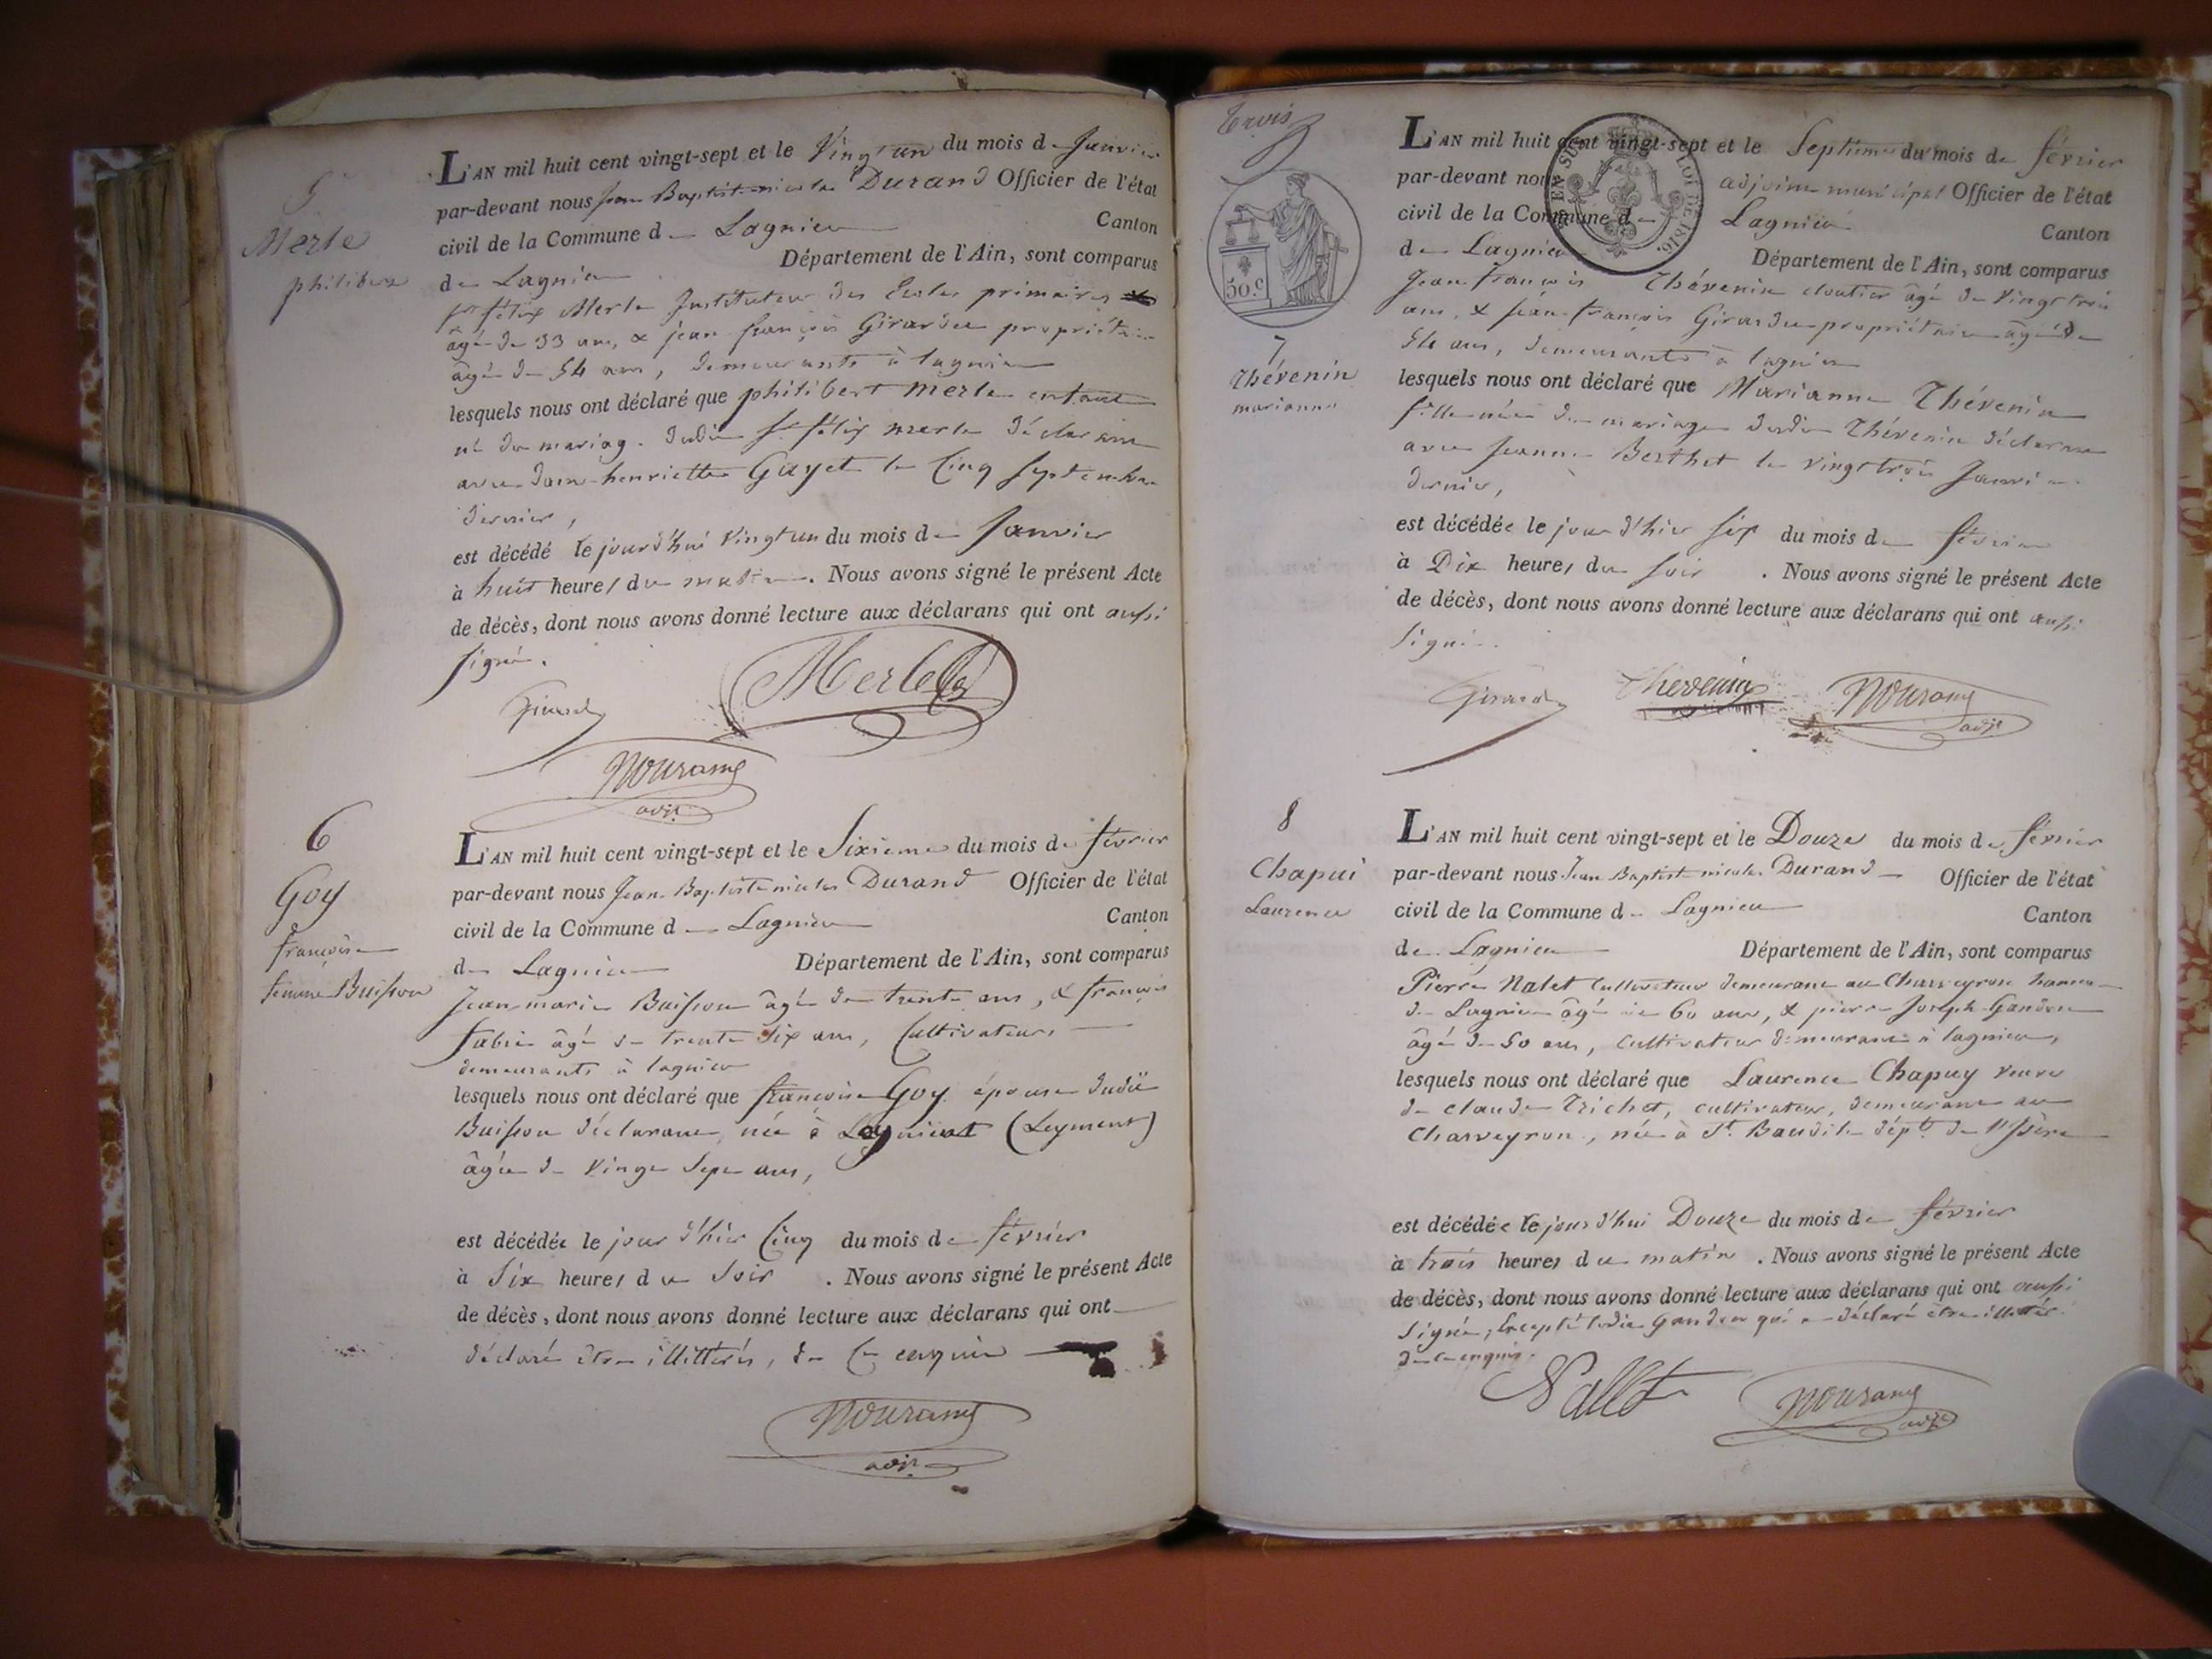 5
Merle
philibert
L'AN mil huit cent vingt-sept et le Vingt un du mois de Janvier
par-devant nous Jean Baptiste nicolas Durand Officier de l'état
civil de la Commune de Lagnieu Canton
de Lagnieu Département de l'Ain, sont comparus
félix Merle Instituteur des Ecoles primaires
âgé de 33 ans, & jean françois Girardu propriétaire
âgé de 54 ans, demeurants à lagnieu
lesquels nous ont déclaré que philibert Merle enfant
né du mariage dudit félix merle déclarant
avec dame henriette Gayet le Cinq Septembre
dernier,
est décédé le jourd'hui Vingt un du mois de Janvier
à huit heures du matin. Nous avons signé le présent Acte
de décès, dont nous avons donné lecture aux déclarans qui ont aussi
signé.
Girard
Merle
Durand
adjt
6
Goy
françoise
femme Buisson
L'AN mil huit cent vingt-sept et le Sixieme du mois de février
par-devant nous Jean Baptiste nicolas Durand Officier de l'état
civil de la Commune de Lagnieu Canton
de Lagnieu Département de l'Ain, sont comparus
Jean-marie Buisson âgé de trente ans, & françois
fabre âgé de trente Six ans, Cultivateurs
demeurants à lagnieu
lesquels nous ont déclaré que françoise Goy épouse dudit
Buisson déclarant, née à (Leyment)
âgée de Vingt Sept ans,
est décédée le jour d'hier Cinq du mois de février
à Six heures du Soir. Nous avons signé le présent Acte
de décès, dont nous avons donné lecture aux déclarans qui ont
déclaré être illittérés, de ce enquis
Durand
adjt
Trois
50.c
LOI DE 1816.
7
Thévenin
marianne
L'AN mil huit cent vingt-sept et le Septieme du mois de février
par-devant nous adjoint municipal Officier de l'état
civil de la Commune de Lagnieu Canton
de Lagnieu Département de l'Ain, sont comparus
Jean françois Thévenin cloutier âgé de Vingt trois
ans, & jean françois Girardu propriétaire âgé de
54 ans, demeurants à lagnieu
lesquels nous ont déclaré que Marianne Thévenin
fille née du mariage dudit Thévenin déclarant
avec Jeanne Berthet le vingt trois Janvier
dernier,
est décédée le jour d'hier Six du mois de février
à Dix heures du Soir. Nous avons signé le présent Acte
de décès, dont nous avons donné lecture aux déclarans qui ont aussi
signé.
Girard
Thevenin
Durand
adjt
8
Chapui
Laurence
L'AN mil huit cent vingt-sept et le Douze du mois de février
par-devant nous Jean Baptiste nicolas Durand Officier de l'état
civil de la Commune de Lagnieu Canton
de Lagnieu Département de l'Ain, sont comparus
Pierre Nalet Cultivateur demeurant au Charveyron hameau
de Lagnieu âgé de 60 ans, & pierre Joseph Gandon
âgé de 50 ans, Cultivateur demeurant à lagnieu,
lesquels nous ont déclaré que Laurence Chapuy veuve
de claude Trichet, cultivateur, demeurant au
Charveyron, née à St. Baudile dépt. de l'Isère
est décédée le jourd'hui Douze du mois de février
à trois heures du matin. Nous avons signé le présent Acte
de décès, dont nous avons donné lecture aux déclarans qui ont aussi
signé, Excepté ledit Gandon qui a déclaré être illittéré
de ce enquis.
Nallet
Durand
adjt